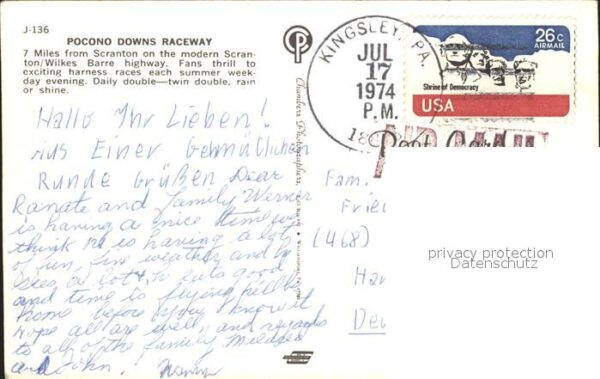 J-136
POCONO DOWNS RACEWAY
7 Miles from Scranton on the modern Scran-
ton/Wilkes Barre highway. Fans thrill to
exciting harness races each summer week-
day evening. Daily double—twin double, rain
or shine.
Hallo Ihr Lieben!
Aus Einer Gemütlichen
Runde Grüßen Dear
Ranate and family Werner
is having a nice time we
think he is having a lot
of fun, fine weather and he
sees a lot, he eats good
and time is flying he'll be
home before you know it
hope all are well, and regards
to all of the family Mildred
and John.
Chambers Photographers,
KINGSLEY, PA.
JUL
17
1974
P.M.
26c
AIRMAIL
Shrine of Democracy
USA
AIR MAIL
Post Card
Fam.
Frie
(468)
Ha
De
privacy protection
Datenschutz